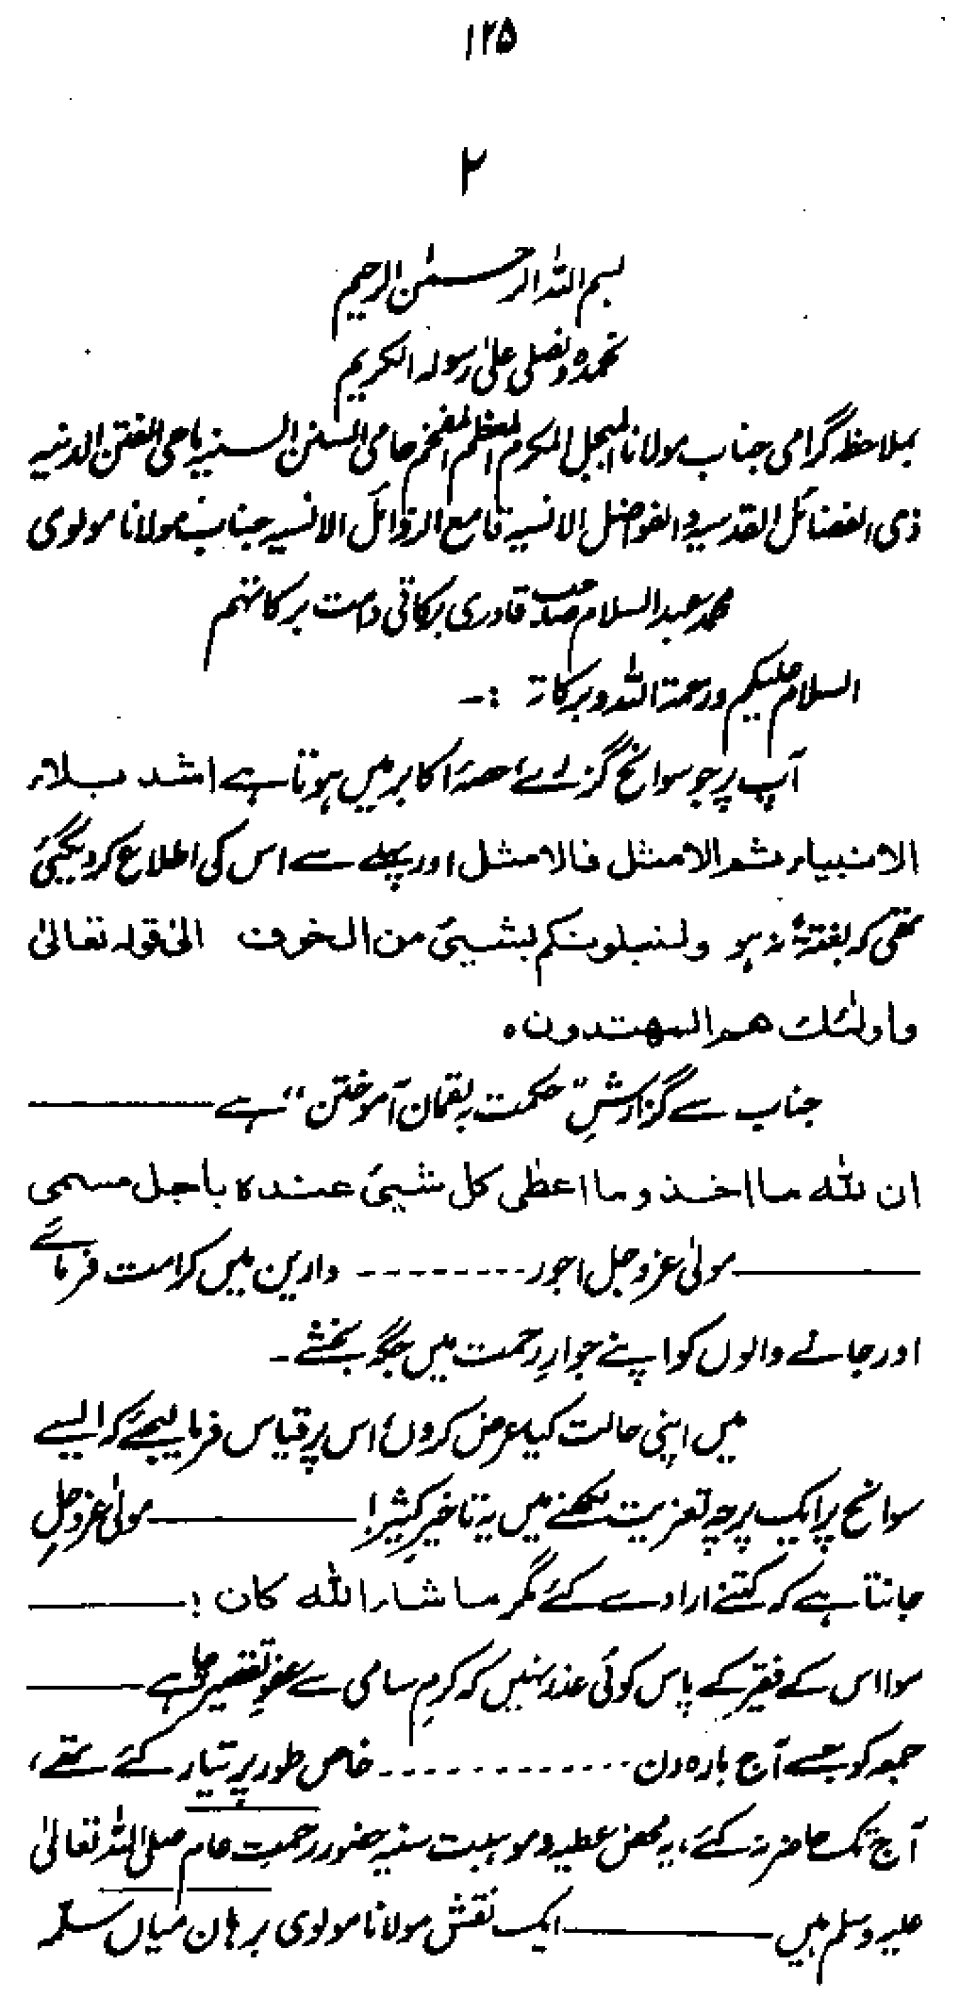 ۱۲۵
۲
بسم اللہ الرحمٰن الرحیم
نحمدہ ونصلی علیٰ رسولہ الکریم
بملاحظہ گرامی جناب مولانا المبجل المکرم المعظم المفخم حامی السنن السنیہ ماحی الفتن الدنیہ
ذی الفضائل القدسیہ والفواضل الانسیہ قامع الرذائل الانسیہ جناب مولانا مولوی
محمد عبدالسلام صاحب قادری برکاتی دامت برکاتہم
السلام علیکم ورحمۃ اللہ وبرکاتہ :۔
آپ پر جو سوانح گزرے، حصۂ اکابر میں ہوتا ہے اشد بلاء
الانبیاء ثم الامثل فالامثل اور پہلے سے اس کی اطلاع کردیگئی
تھی کہ بغتۃً نہ ہو ولنبلونکم بشیئ من الخوف الیٰ قولہ تعالیٰ
واولٰئك هم المهتدون ہ
جناب سے گزارشِ "حکمت بہ لقمان آموختن" ہے ————
ان للہ ما اخذ وما اعطٰی کل شیئ عندہ باجل مسمی
———— مولیٰ عزوجل اجور -------- دارین میں کرامت فرمائے
اور جانے والوں کو اپنے جوارِ رحمت میں جگہ بخشے ۔
میں اپنی حالت کیا عرض کروں، اس پر قیاس فرما لیجئے کہ ایسے
سوانح پر ایک پرچہ تعزیت لکھنے میں یہ تاخیرِ کثیر! ———— مولیٰ عزوجل
جانتا ہے کہ کتنے ارادے کئے مگر ما شاء اللہ کان : ————
سوا اس کے فقیر کے پاس کوئی عذر نہیں کہ کرمِ سامی سے عفوِ تقصیر چاہے ————
جمعہ کو جسے آج بارہ دن ------------ خاص طور پر تیار کئے تھے،
آج تک حاضر نہ کئے، یہ محض عطیہ وموہبت سنیہ حضور رحمت عام صلی اللہ تعالیٰ
علیہ وسلم ہیں ———— ایک نقش مولانا مولوی برہان میاں سلمہ